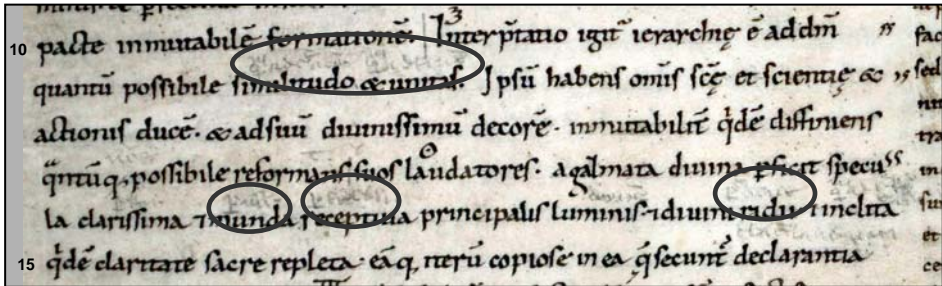 10 pacte inmutabilē formationē. Interp̄tatio igit̄ ierarchię ē addm̄
quantū possibile similitudo & unitas. Ipsū habens omīs scę et scientię &
actionis ducē. & adsuū diuinissimū decorē. inmutabilit̄ q̇dē diffiniens
q̄ntūq; possibile reformans suos laudatores. agalmata diuina ꝑficit specu
la clarissima ⁊ munda receptiua principalis luminis ⁊ diuini radii ⁊ inclita
15 q̇dē claritate sacre repleta. eāq; iterū copiose in ea q̄ secunt̄ declarantia